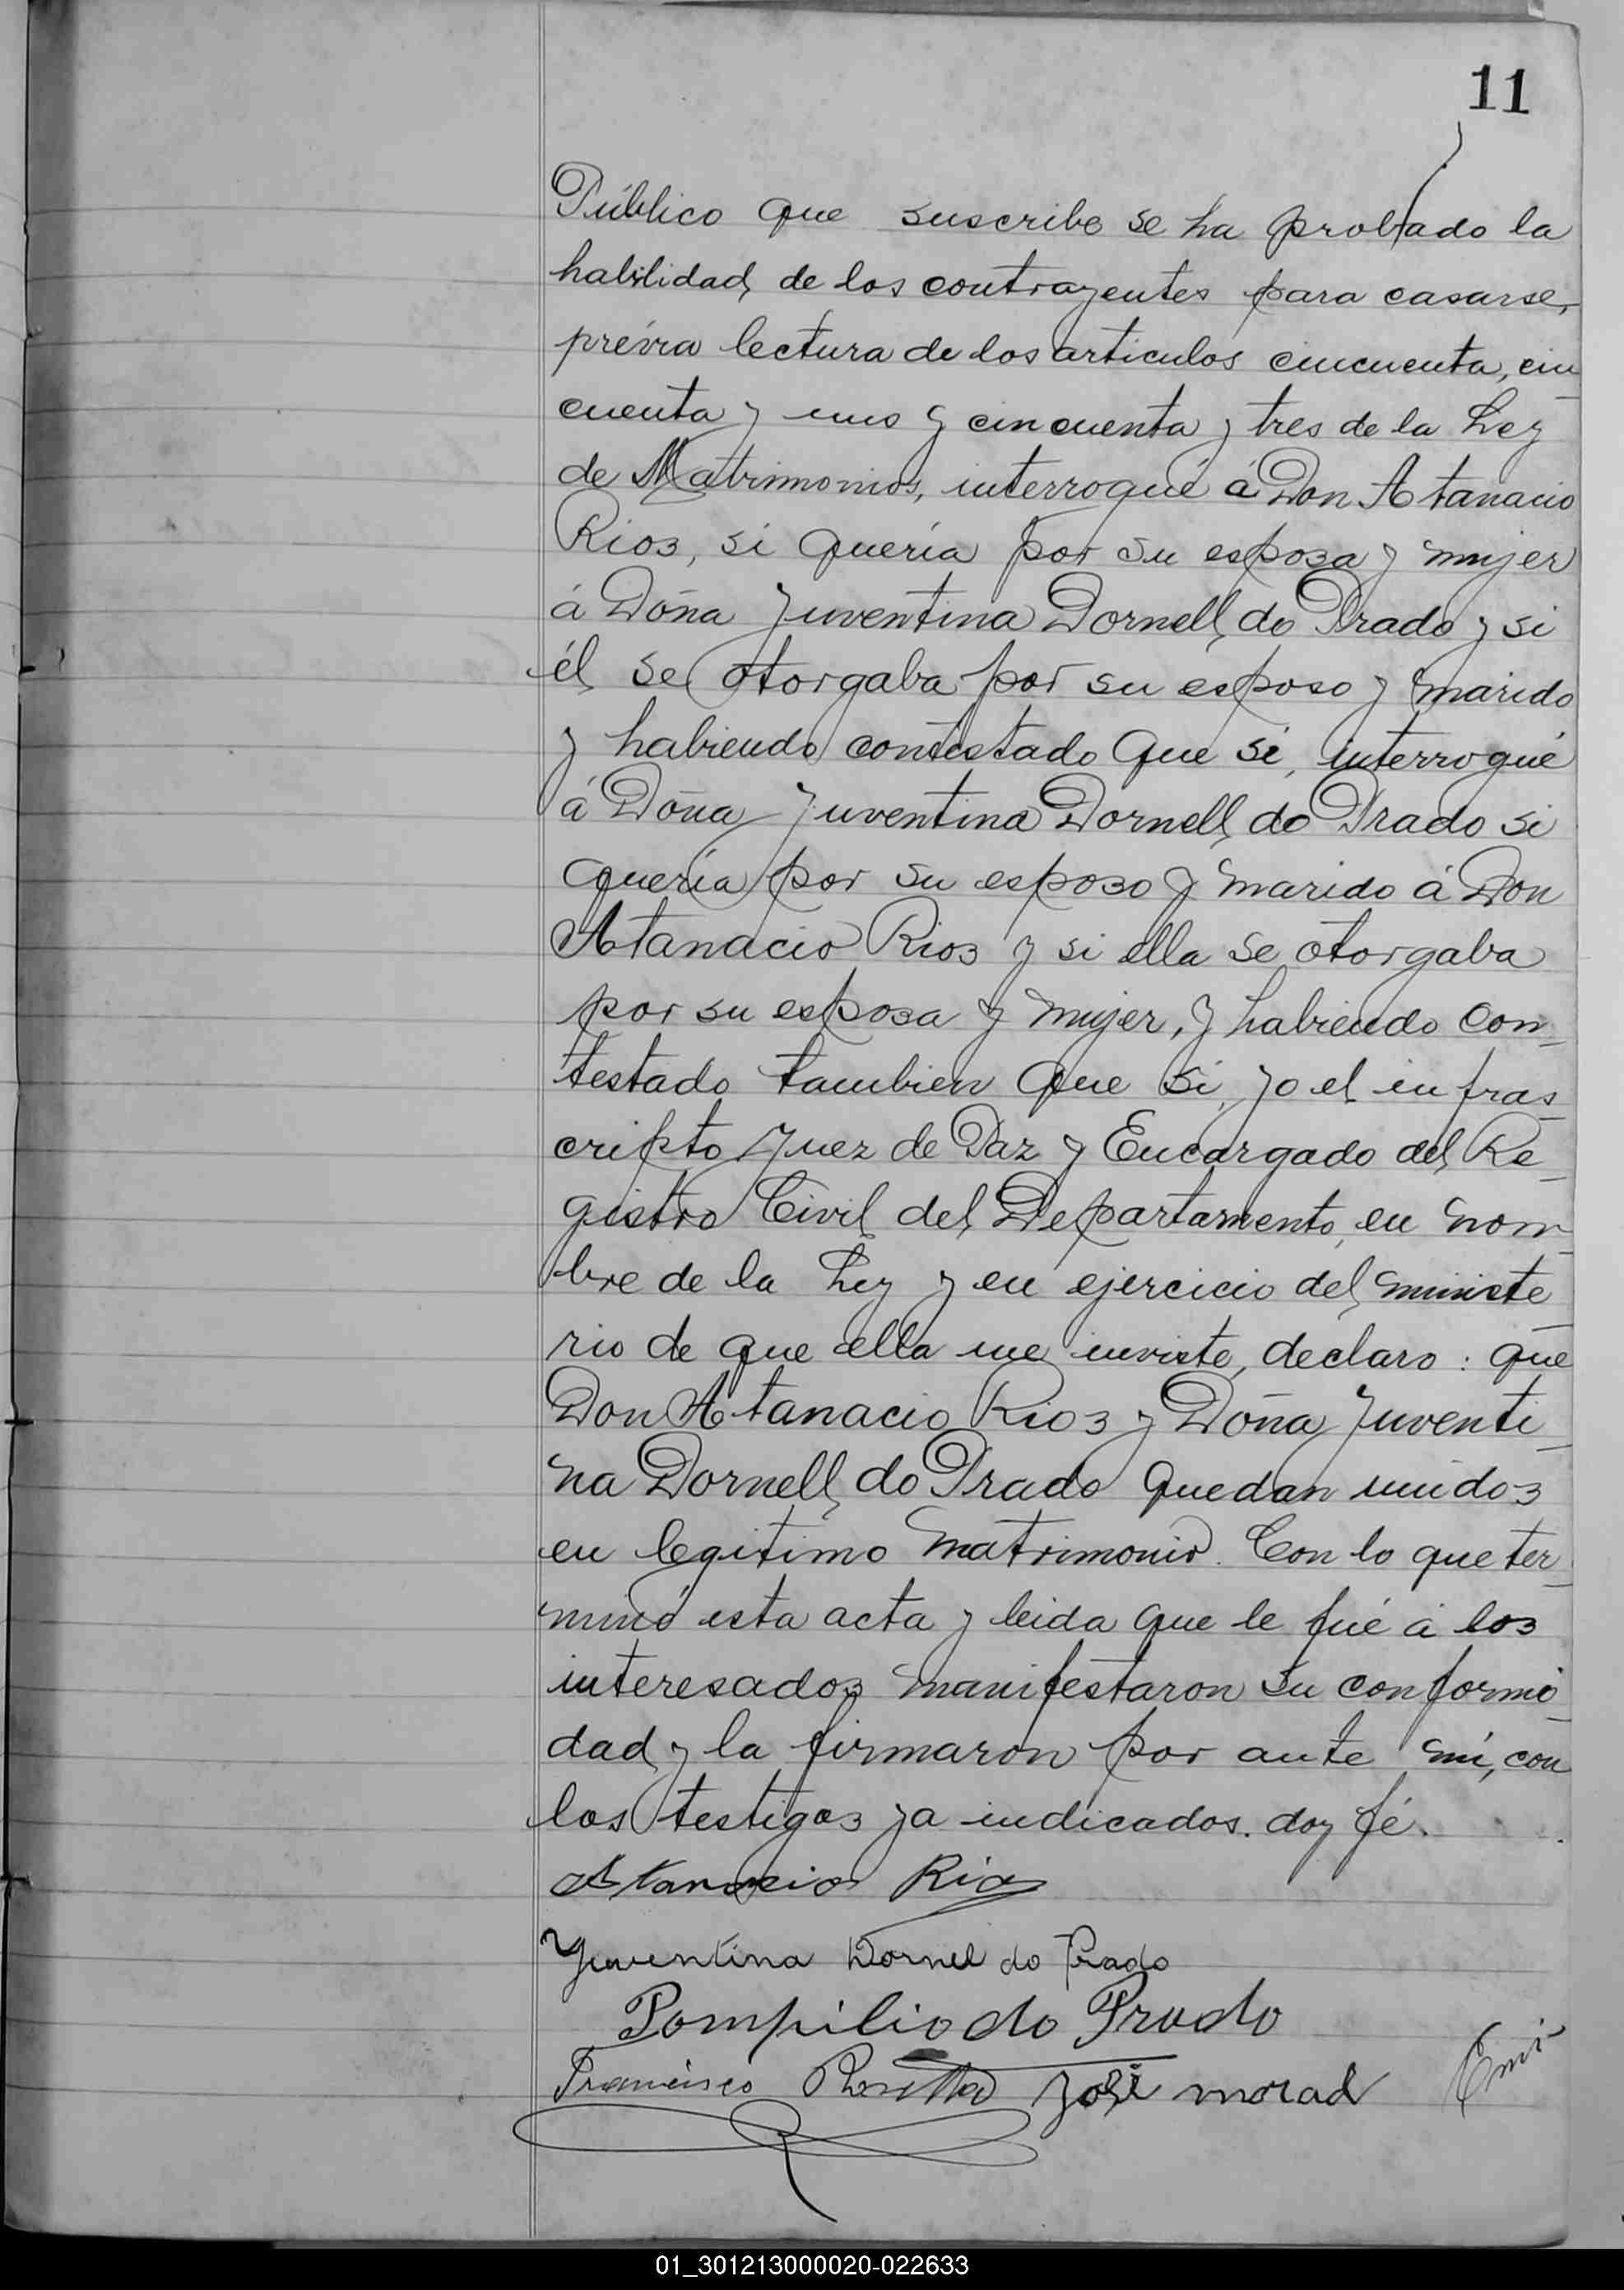 11
Público que suscribe se ha probado la
habilidad de los contrayentes para casarse,
prévia lectura de los articulos cincuenta, cin
cuenta y uno y cincuenta y tres de la Ley
de Matrimonios, interrogué á Don Atanacio
Rios, si quería por su esposa y mujer
á Doña Juventina Dornell do Prado y si
él se otorgaba por su esposo y marido
y habiendo contestado que si, interrogué
á Doña Juventina Dornell do Prado si
quería por su esposo y marido á Don
Atanacio Rios y si ella se otorgaba
por su esposa y mujer, y habiendo con_
testado tambien que si, yo el infras_
cripto Juez de Paz y Encargado del Re_
gistro Civil del Departamento, en nom_
bre de la Ley y en ejercicio del ministe_
rio de que ella me inviste, declaro: que
Don Atanacio Rios y Doña Juventi_
na Dornell do Prado quedan unidos
en legitimo matrimonio. Con lo que ter_
minó esta acta y leida que le fué á los
interesados manifestaron su conformi_
dad y la firmaron por ante mi, con
los testigos ya indicados. doy fé.
Atanacio Rios
Juventina Dornel do Prado
Pompilio do Prado
Francisco José morad
01_301213000020-022633